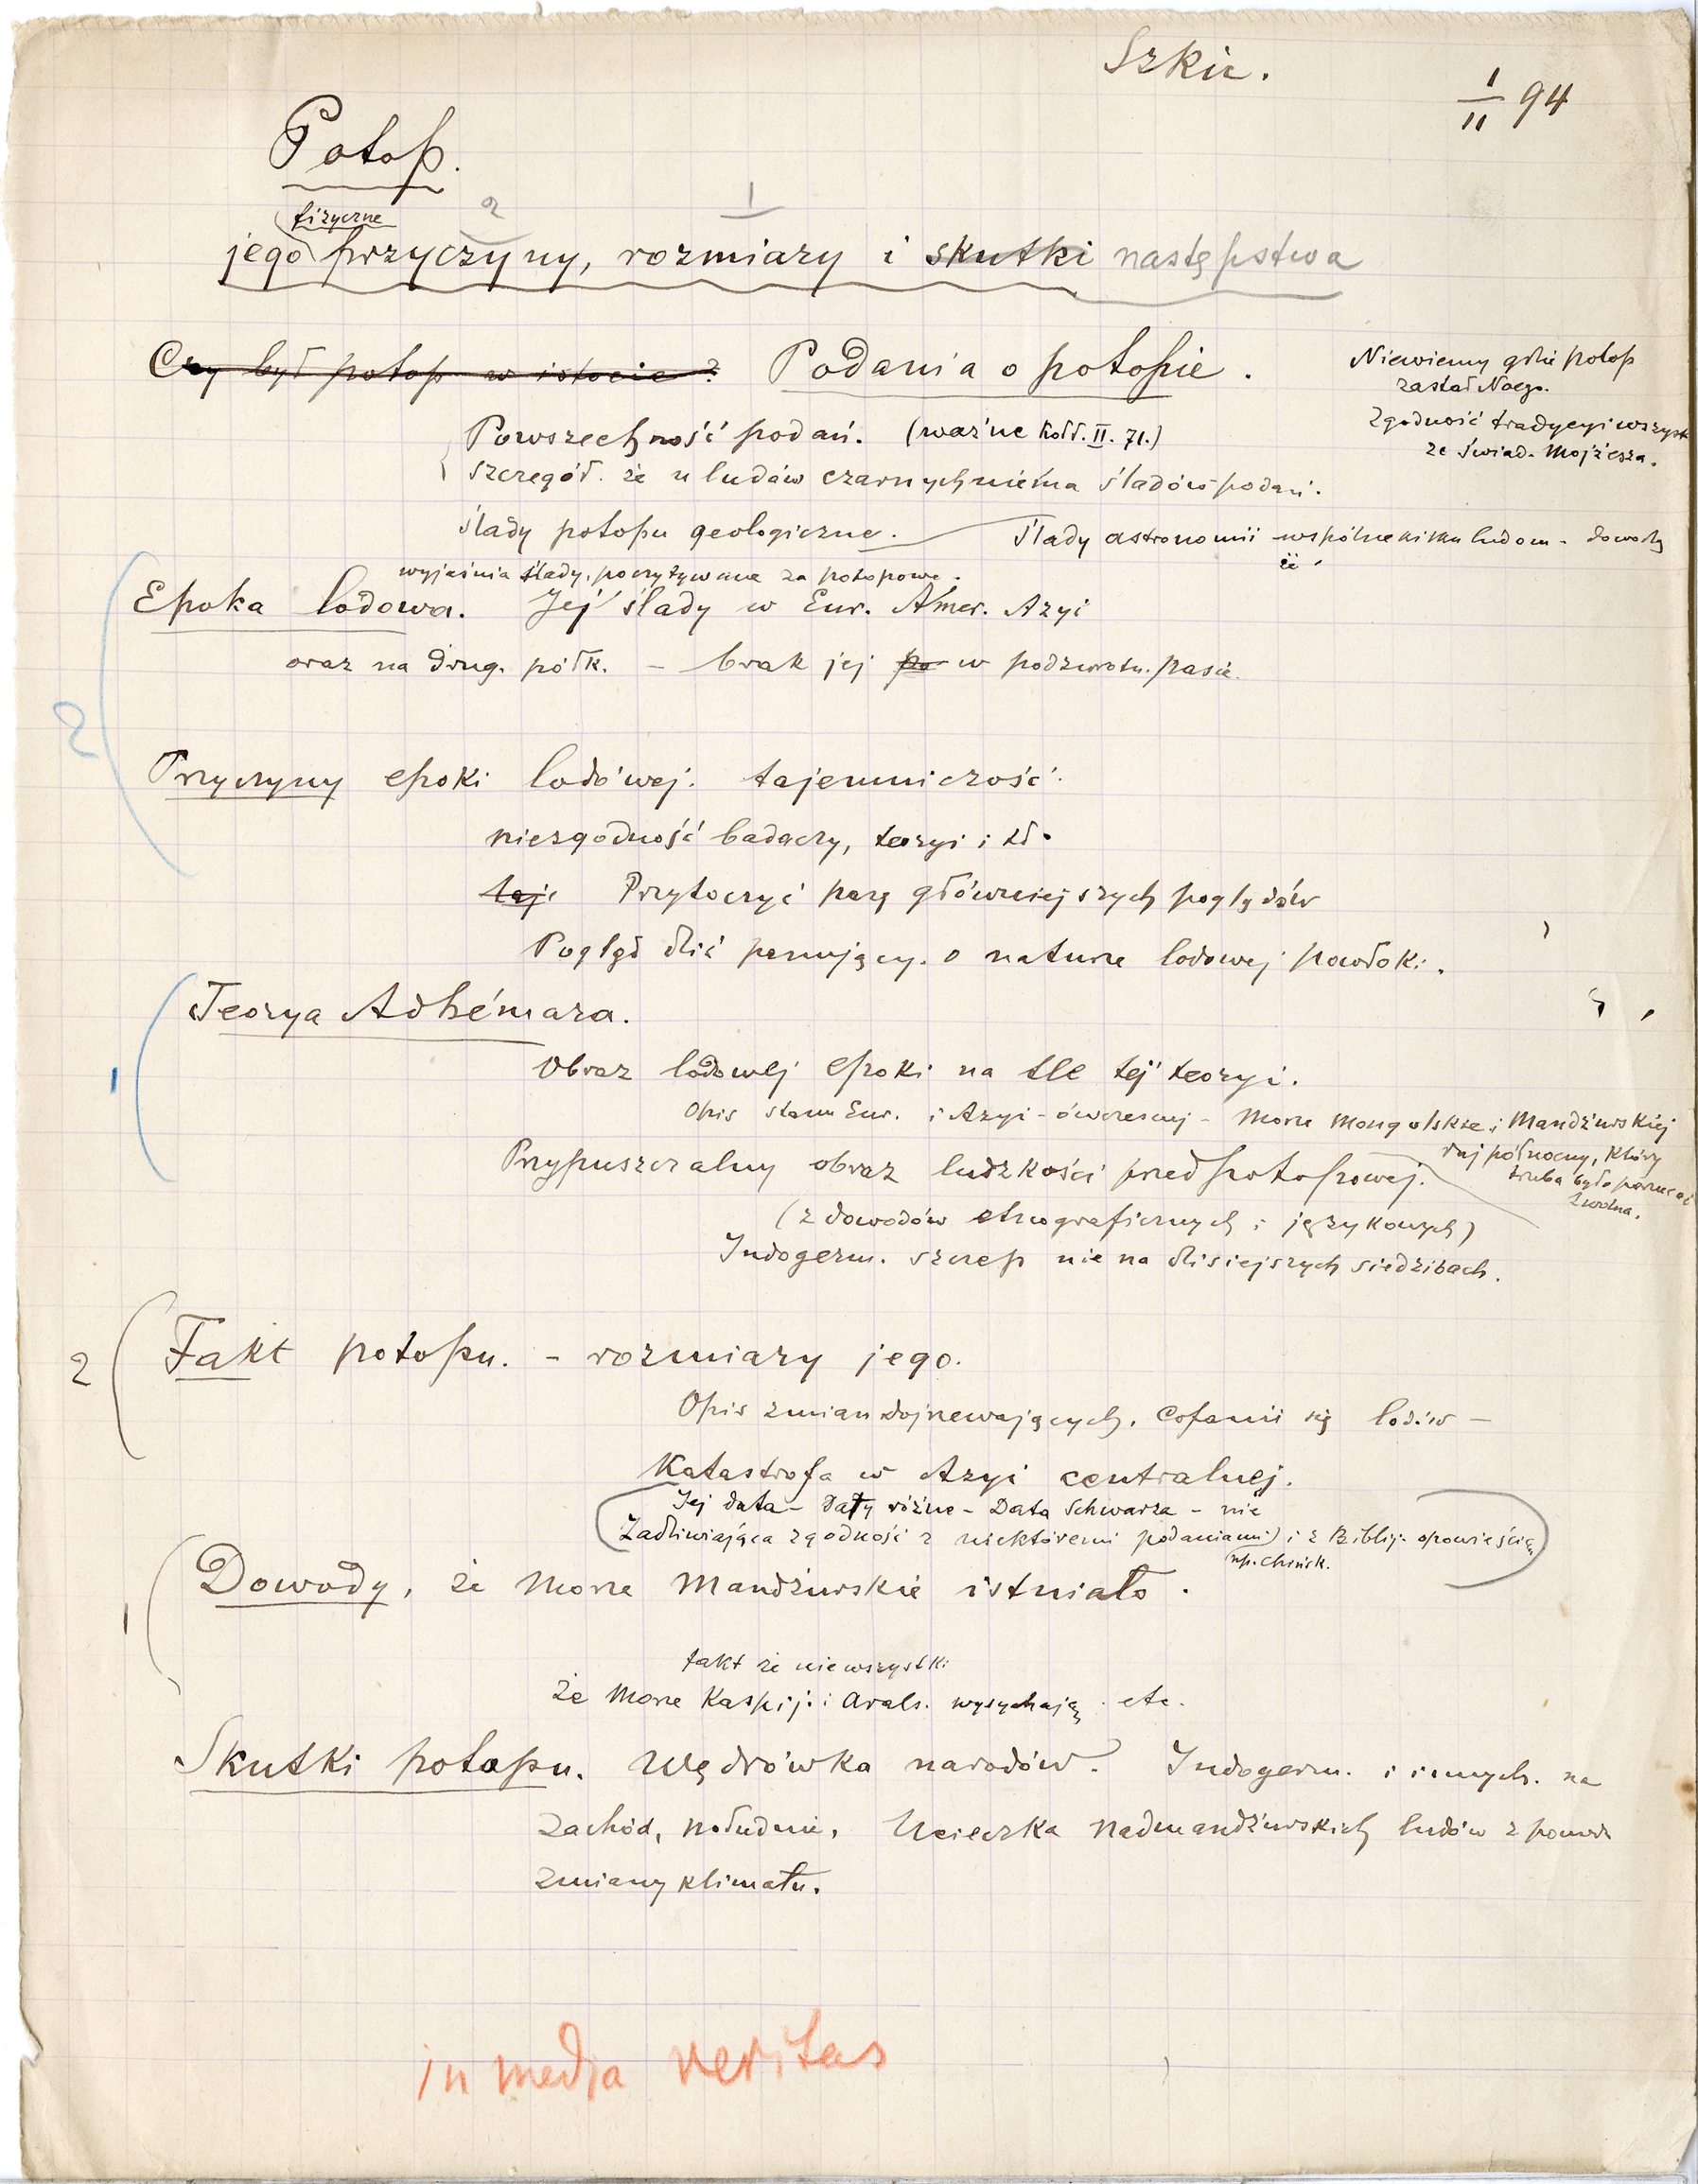 Szkic.
1/II 94
Potop.
fizyczne 2 1
jego przyczyny, rozmiary i skutki następstwa
Czy był potop w istocie? Podania o potopie.
Niewiemy gdzie potop
zastał Noego.
Zgodność tradycyi wszyst
ze świad. Mojżesza.
Powszechność podań. (ważne Kołł. II. 71.)
szczegół. że u ludów czarnych niema śladów podań.
ślady potopu geologiczne. Ślady astronomii wspólne kilku ludom - dowody
że
wyjaśnia ślady, poczytywane za potopowe.
Epoka lodowa. Jej ślady w Eur. Amer. Azyi
oraz na drug. półk. - brak jej po w podzwrotn. pasie.
2
Przyczyny epoki lodowej. tajemniczość.
niezgodność badaczy, teoryi i td.
taje Przytoczyć parę główniejszych poglądów
Pogląd dziś panujący. o naturze lodowej powłoki.
Teorya Adhémara.
1
Obraz lodowej epoki na tle tej teoryi.
Opis stanu Eur. i Azyi - ówczesnej - Morze Mongolskie i Mandżurskiej
raj północny, który
trzeba było porzucać
zwolna.
Przypuszczalny obraz ludzkości przedpotopowej.
(z dowodów etnograficznych i językowych)
Indogerm. szczep nie na dzisiejszych siedzibach.
2
Fakt potopu. - rozmiary jego.
Opis zmian dojrzewających. Cofanie się lodów -
Katastrofa w Azyi centralnej.
Jej data - Daty różne - Data Schwarza - nie
Zadziwiająca zgodność z niektóremi podaniami) i z Biblij. opowieścią
np. chińsk.
Dowody, że Morze Mandżurskie istniało.
1
fakt że niewszystki
że Morze Kaspij. i Arals. wysychają etc.
Skutki potopu. Wędrówka narodów. Indogerm. i innych. na
zachód, południe. Ucieczka nadmandżurskich ludów z powodu
zmiany klimatu.
in media veritas